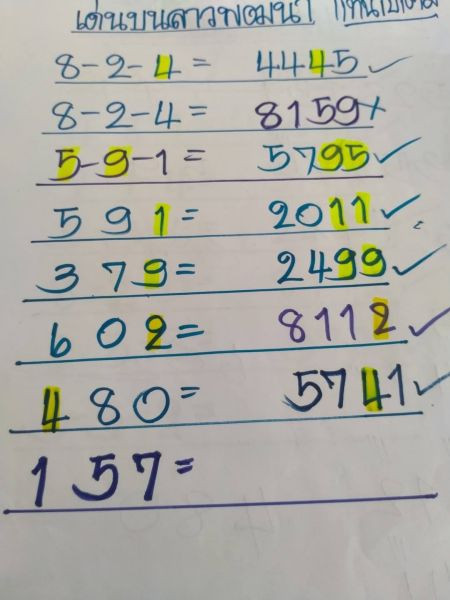 เด่นบนลาวพัฒนา
8-2-4= 4445 ✓
8-2-4= 8159 ×
5-9-1= 5795 ✓
591= 2011 ✓
379= 2499 ✓
602= 8112 ✓
480= 5741 ✓
157=